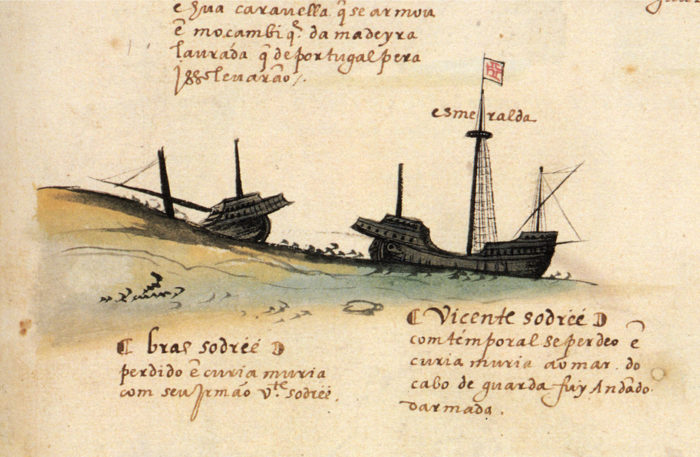 e sua caravella q̃ se armou
ẽ moçambiq̃. da madeyra
laurada q̃ de portugal pera
Isso levarão.
esmeralda
bras sodréé
perdido ẽ curia muria
com seu Irmão v.te sodréé.
Vicente sodréé
com temporal se perdeo ẽ
curia muria ao mar. do
cabo de guarda fuy Andãdo.
darmada.